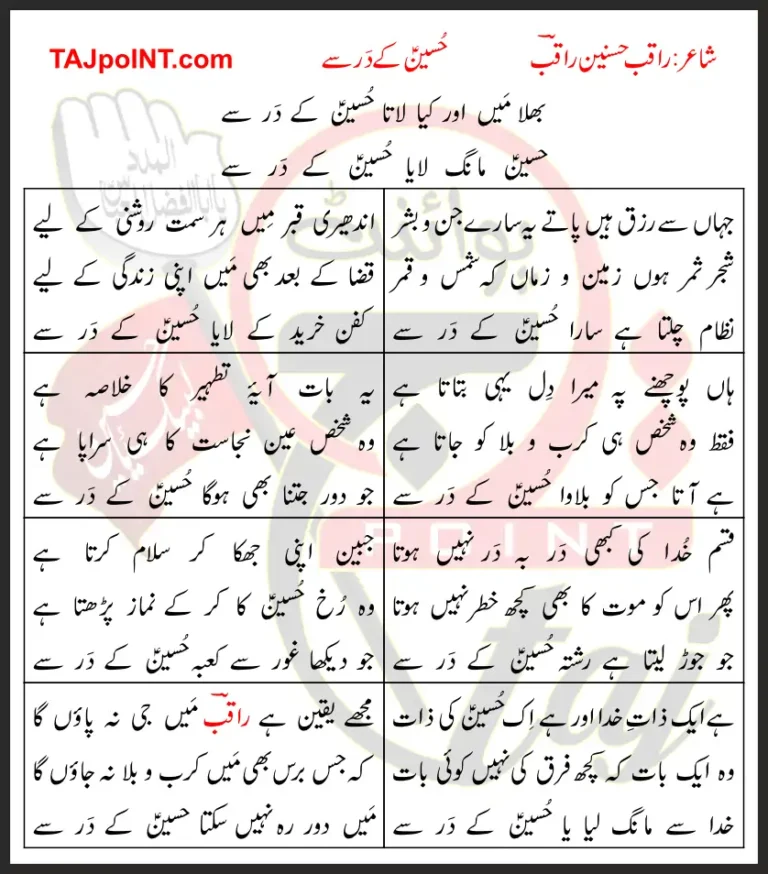 شاعر: راقب حسنین راقبؔ
حُسینؑ کے دَر سے
TAJpoINT.com
بھلا مَیں اور کیا لاتا حُسینؑ کے دَر سے
حسینؑ مانگ لایا حُسینؑ کے دَر سے
جہاں سے رزق ہیں پاتے یہ سارے جن و بشر
شجر ثمر ہوں زمین و زماں کہ شمس و قمر
نظام چلتا ہے سارا حُسینؑ کے دَر سے
اندھیری قبر مِیں ہر سمت روشنی کے لیے
قضا کے بعد بھی مَیں اپنی زندگی کے لیے
کفن خرید کے لایا حُسینؑ کے دَر سے
ہاں پوچھنے پہ میرا دِل یہی بتاتا ہے
فقط وہ شخص ہی کرب و بلا کو جاتا ہے
ہے آتا جس کو بلاوا حُسینؑ کے دَر سے
یہ بات آیۂ تطہیر کا خلاصہ ہے
وہ شخص عین نجاست کا ہی سراپا ہے
جو دور جتنا بھی ہوگا حُسینؑ کے دَر سے
قسم خُدا کی کبھی دَر بہ دَر نہیں ہوتا
پھر اس کو موت کا بھی کچھ خطر نہیں ہوتا
جو جوڑ لیتا ہے رشتہ حُسینؑ کے دَر سے
جبین اپنی جھکا کر سلام کرتا ہے
وہ رُخ حُسینؑ کا کر کے نماز پڑھتا ہے
جو دیکھا غور سے کعبہ حُسینؑ کے دَر سے
ہے ایک ذاتِ خدا اور ہے اِک حُسینؑ کی ذات
وہ ایک بات کہ کچھ فرق کی نہیں کوئی بات
خدا سے مانگ لیا یا حُسینؑ کے دَر سے
مجھے یقین ہے راقبؔ مَیں جی نہ پاؤں گا
کہ جس برس بھی مَیں کرب و بلا نہ جاؤں گا
مَیں دور رہ نہیں سکتا حسینؑ کے دَر سے
تاج پوائنٹ
POINT
taj
المدد
لبیک یا حسین